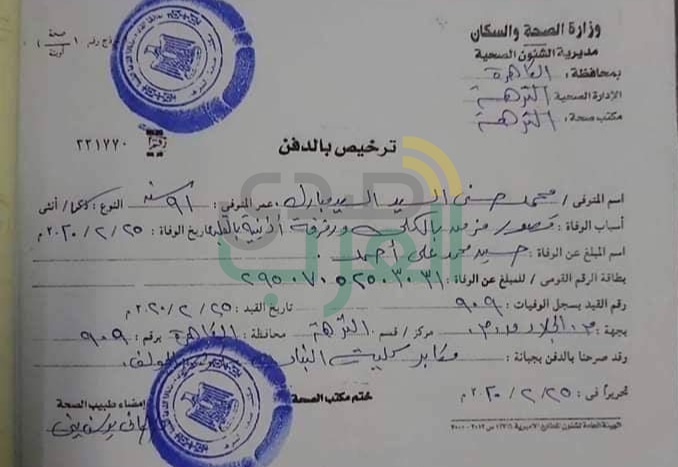 وزارة الصحة والسكان
مديرية الشئون الصحية
بمحافظة : القاهرة
الإدارة الصحية النزهة
مكتب صحة : النزهة
صحة
٢٢١٧٧٠
ترخيص بالدفن
اسم المتوفى / محمد حسنى السيد السيد مبارك عمر المتوفى : ٩١ سنة النوع : ذكر / أنثى
أسباب الوفاة : قصور مزمن بالكلى ورفرفة أذينية بالقلب تاريخ الوفاة : ٢٥ / ٢ / ٢٠٢٠ م
اسم المبلغ عن الوفاة : محمد على أحمد
بطاقة الرقم القومى / للمبلغ عن الوفاة :
رقم القيد بسجل الوفيات : ٩٠٩ تاريخ القيد : ٢٥ / ٢ / ٢٠٢٠ م
بجهة : مركز / قسم النزهة محافظة : القاهرة برقم : ٩٠٩
وقد صرحنا بالدفن بجبانة : مقابر
تحريراً فى : ٢٥ / ٢ / ٢٠٢٠ م
ختم مكتب الصحة
إمضاء طبيب الصحة
الهيئة العامة لشئون المطابع الأميرية
صدى العرب